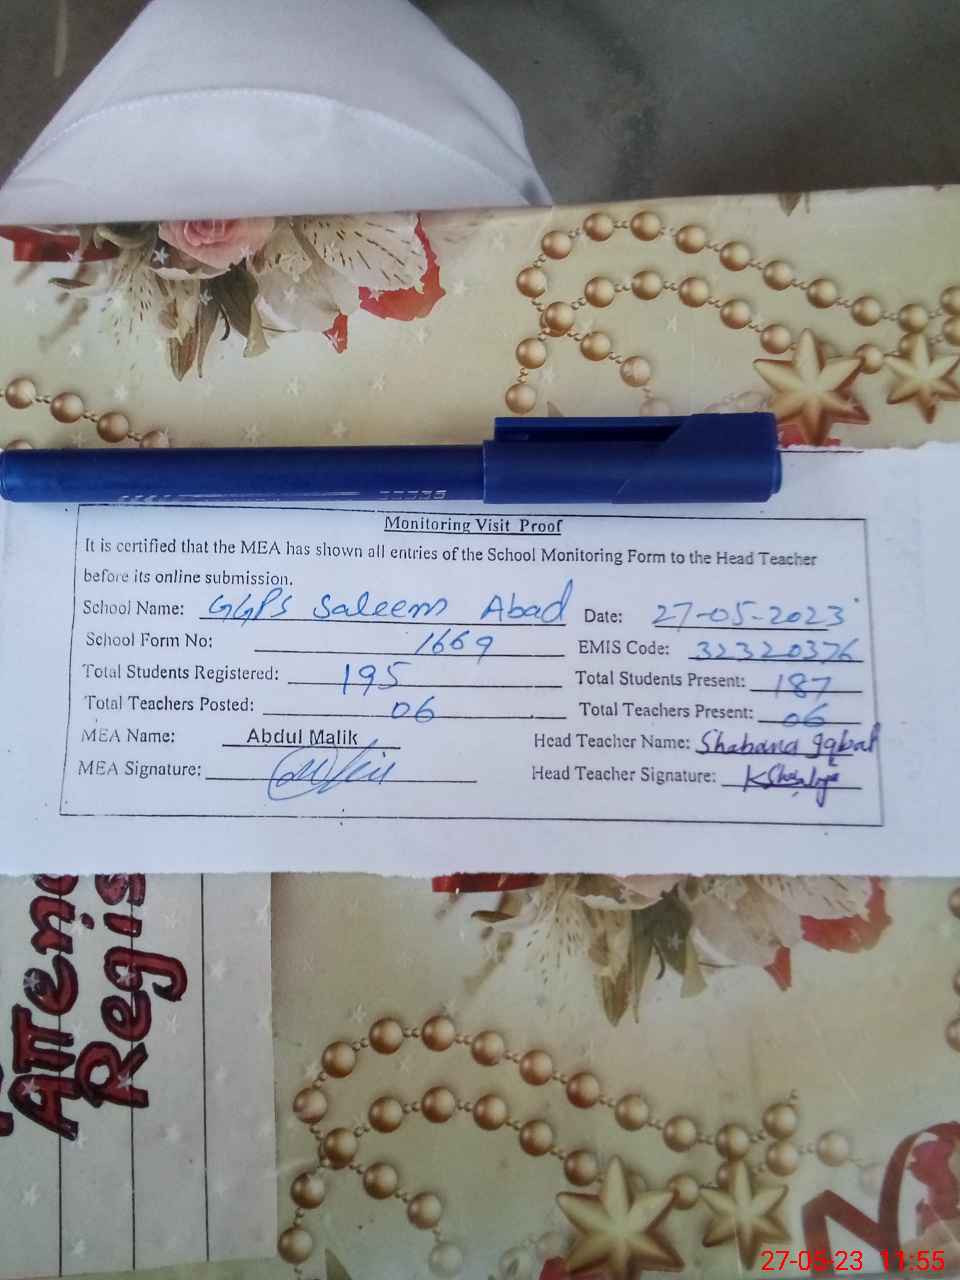 Monitoring Visit Proof
It is certified that the MEA has shown all entries of the School Monitoring Form to the Head Teacher
before its online submission.
School Name: GGPS Saleem Abad Date: 27-05-2023
School Form No: 1669 EMIS Code: 32320376
Total Students Registered: 195 Total Students Present: 187
Total Teachers Posted: 06 Total Teachers Present: 06
MEA Name: Abdul Malik Head Teacher Name: Shabana Iqbal
MEA Signature: Head Teacher Signature:
Atten
Regis
27-05-23 11:55